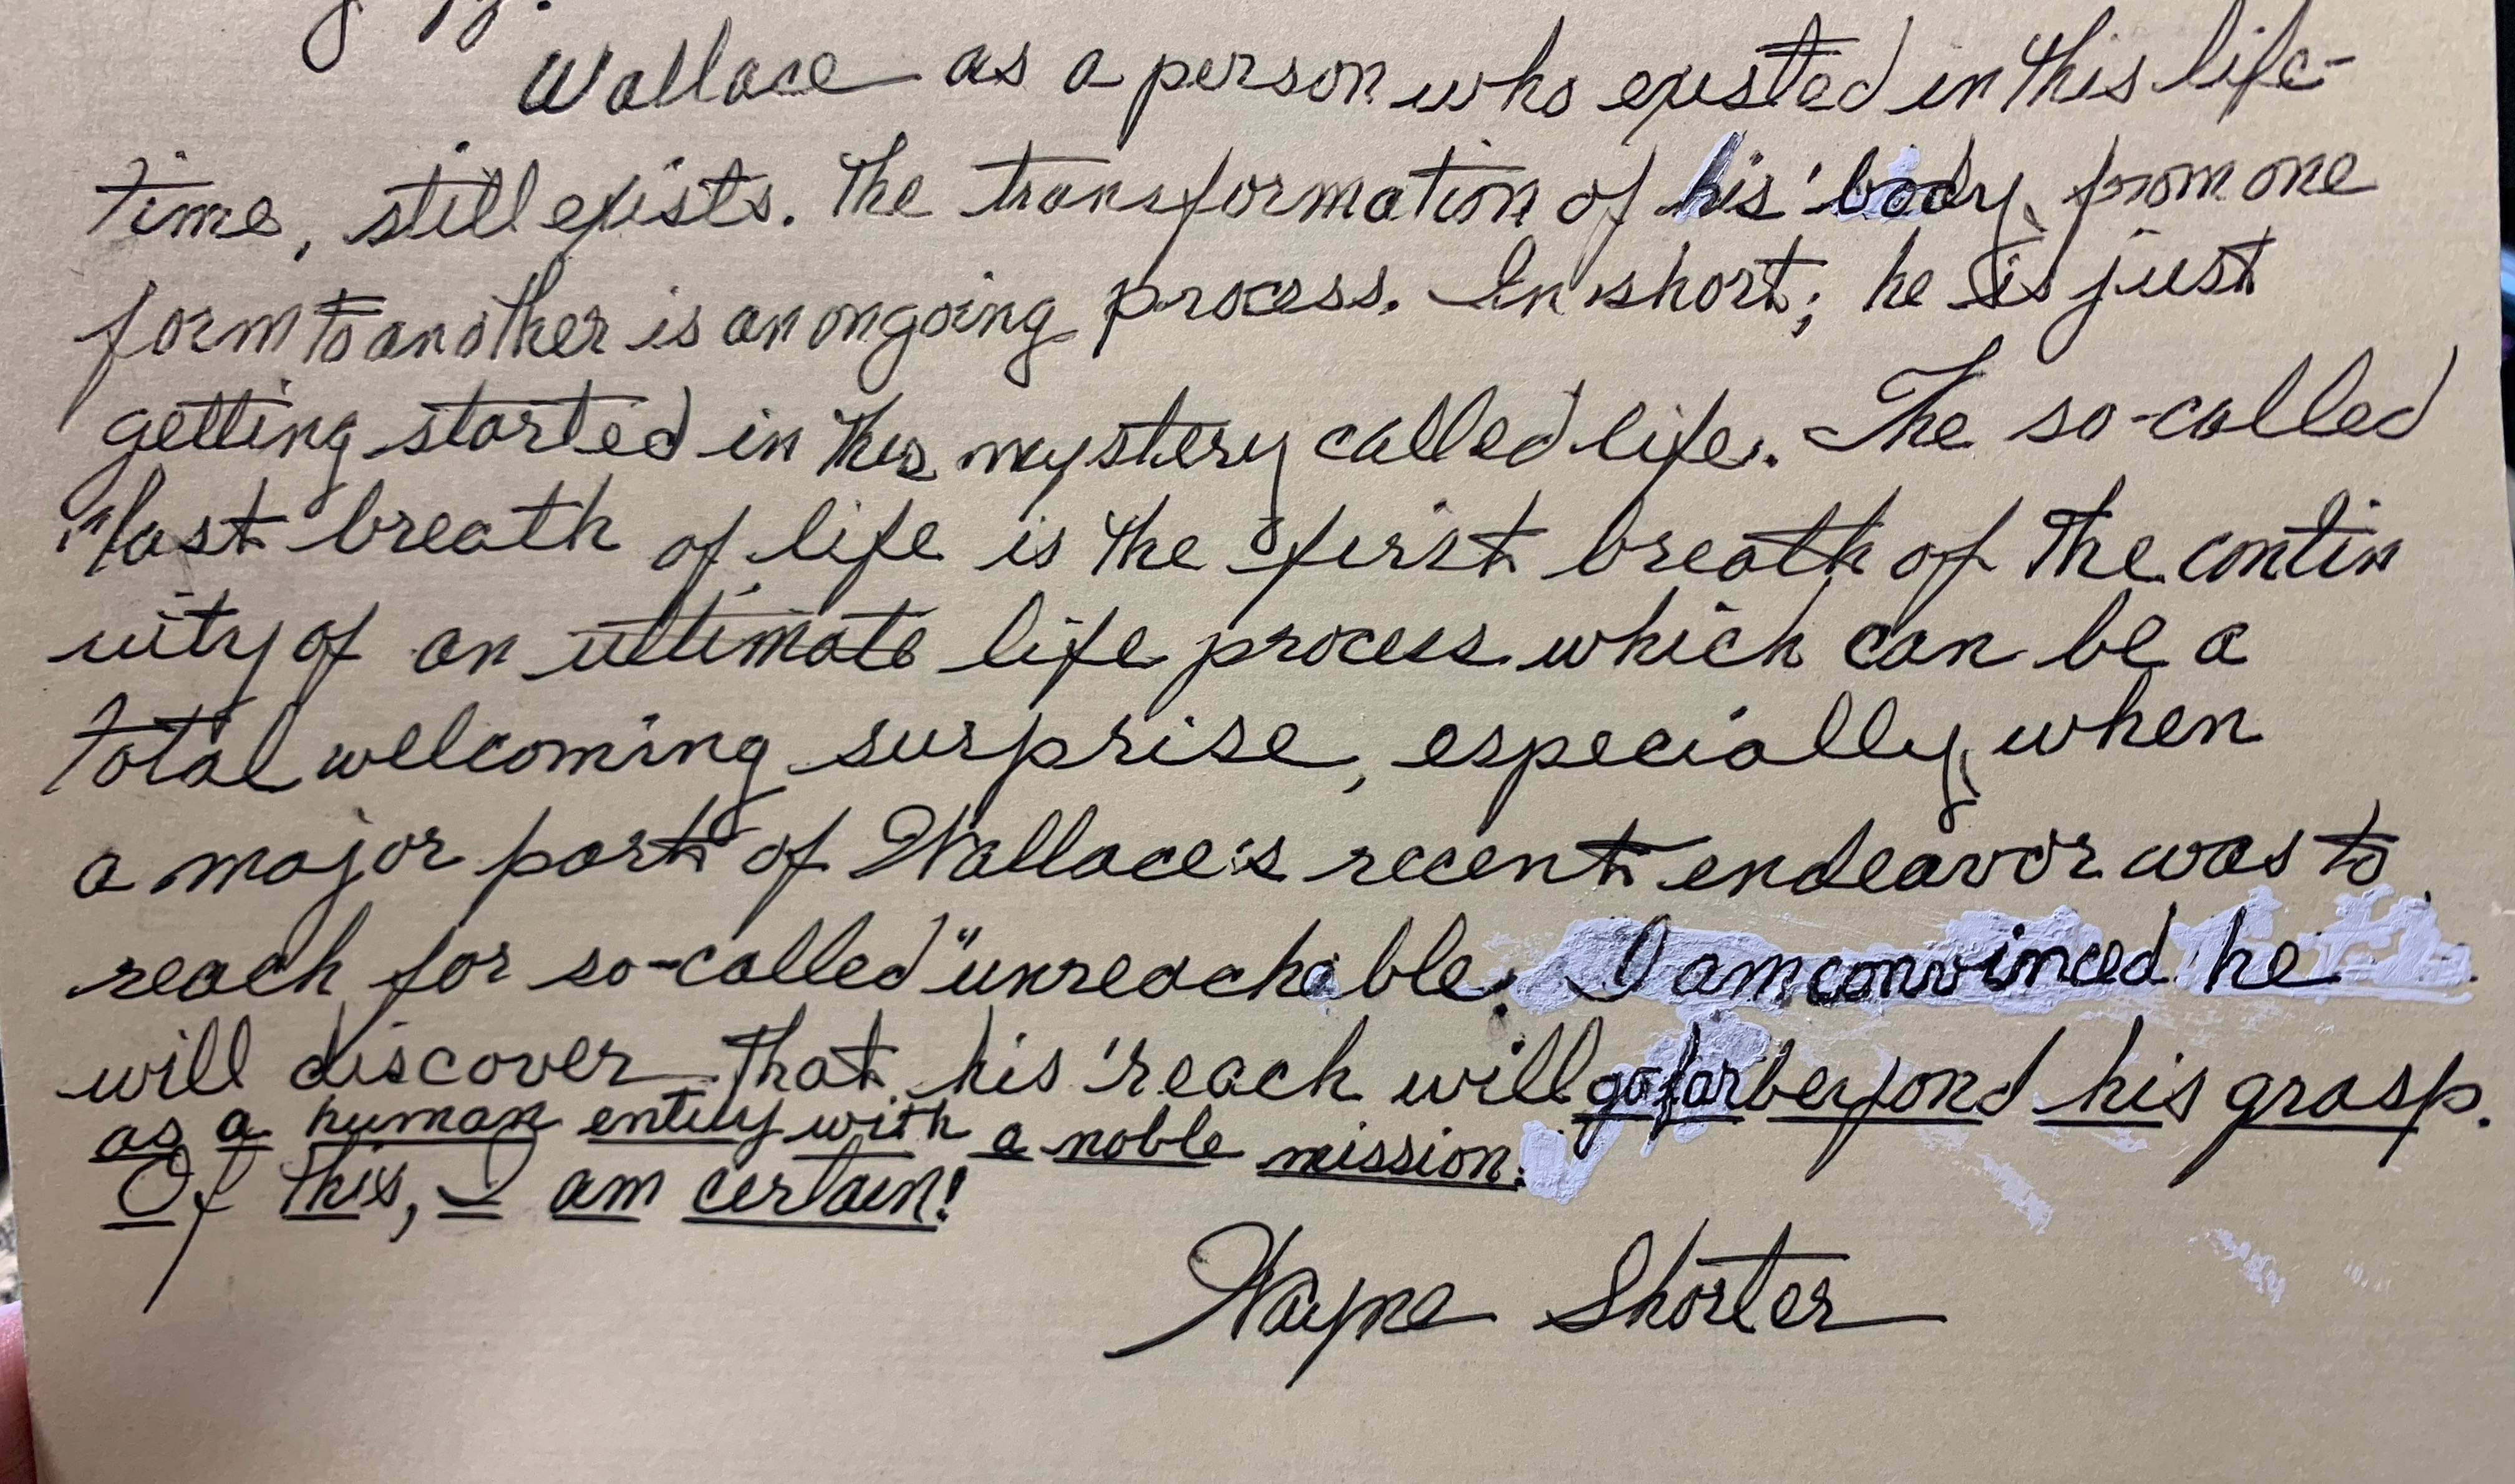 Wallace as a person who existed in this life-
time, still exists. The transformation of his body, from one
form to another is an ongoing process. In short; he is just
getting started in this mystery called life. The so-called
"last breath of life is the first breath of the contin
uity of an ultimate life process which can be a
total welcoming surprise, especially, when
a major part of Wallace's recent endeavor was to
reach for so-called "unreachable. I am convinced he
will discover that his reach will go far beyond his grasp.
as a human entity with a noble mission.
Of this, I am certain!
Wayne Shorter